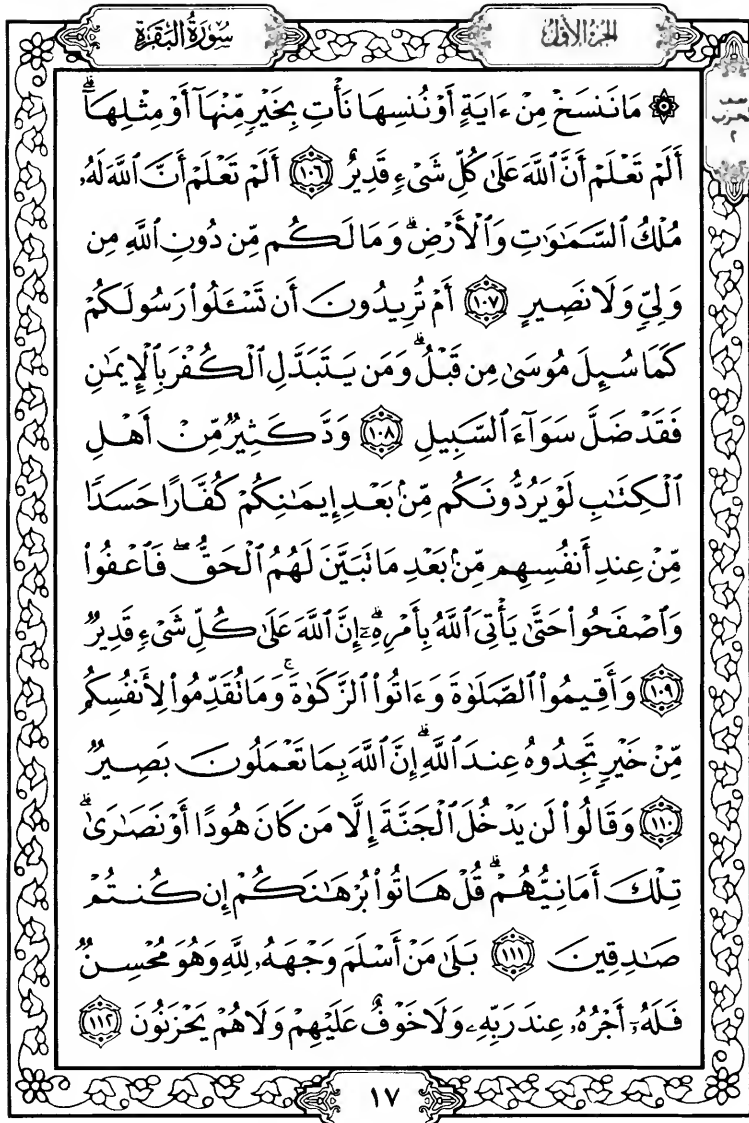 سُورَةُ البَقَرَةِ
الجزء الأول
نصف
الحزب
٢
۞ مَا نَنسَخْ مِنْ ءَايَةٍ أَوْ نُنسِهَا نَأْتِ بِخَيْرٍ مِّنْهَآ أَوْ مِثْلِهَآ ۗ
أَلَمْ تَعْلَمْ أَنَّ ٱللَّهَ عَلَىٰ كُلِّ شَىْءٍ قَدِيرٌ ١٠٦ أَلَمْ تَعْلَمْ أَنَّ ٱللَّهَ لَهُۥ
مُلْكُ ٱلسَّمَٰوَٰتِ وَٱلْأَرْضِ ۗ وَمَا لَكُم مِّن دُونِ ٱللَّهِ مِن
وَلِىٍّ وَلَا نَصِيرٍ ١٠٧ أَمْ تُرِيدُونَ أَن تَسْـَٔلُوا۟ رَسُولَكُمْ
كَمَا سُئِلَ مُوسَىٰ مِن قَبْلُ ۗ وَمَن يَتَبَدَّلِ ٱلْكُفْرَ بِٱلْإِيمَٰنِ
فَقَدْ ضَلَّ سَوَآءَ ٱلسَّبِيلِ ١٠٨ وَدَّ كَثِيرٌ مِّنْ أَهْلِ
ٱلْكِتَٰبِ لَوْ يَرُدُّونَكُم مِّنۢ بَعْدِ إِيمَٰنِكُمْ كُفَّارًا حَسَدًا
مِّنْ عِندِ أَنفُسِهِم مِّنۢ بَعْدِ مَا تَبَيَّنَ لَهُمُ ٱلْحَقُّ ۖ فَٱعْفُوا۟
وَٱصْفَحُوا۟ حَتَّىٰ يَأْتِىَ ٱللَّهُ بِأَمْرِهِۦٓ ۗ إِنَّ ٱللَّهَ عَلَىٰ كُلِّ شَىْءٍ قَدِيرٌ
١٠٩ وَأَقِيمُوا۟ ٱلصَّلَوٰةَ وَءَاتُوا۟ ٱلزَّكَوٰةَ ۚ وَمَا تُقَدِّمُوا۟ لِأَنفُسِكُم
مِّنْ خَيْرٍ تَجِدُوهُ عِندَ ٱللَّهِ ۗ إِنَّ ٱللَّهَ بِمَا تَعْمَلُونَ بَصِيرٌ
١١٠ وَقَالُوا۟ لَن يَدْخُلَ ٱلْجَنَّةَ إِلَّا مَن كَانَ هُودًا أَوْ نَصَٰرَىٰ ۗ
تِلْكَ أَمَانِيُّهُمْ ۗ قُلْ هَاتُوا۟ بُرْهَٰنَكُمْ إِن كُنتُمْ
صَٰدِقِينَ ١١١ بَلَىٰ مَنْ أَسْلَمَ وَجْهَهُۥ لِلَّهِ وَهُوَ مُحْسِنٌ
فَلَهُۥٓ أَجْرُهُۥ عِندَ رَبِّهِۦ وَلَا خَوْفٌ عَلَيْهِمْ وَلَا هُمْ يَحْزَنُونَ ١١٢
١٧